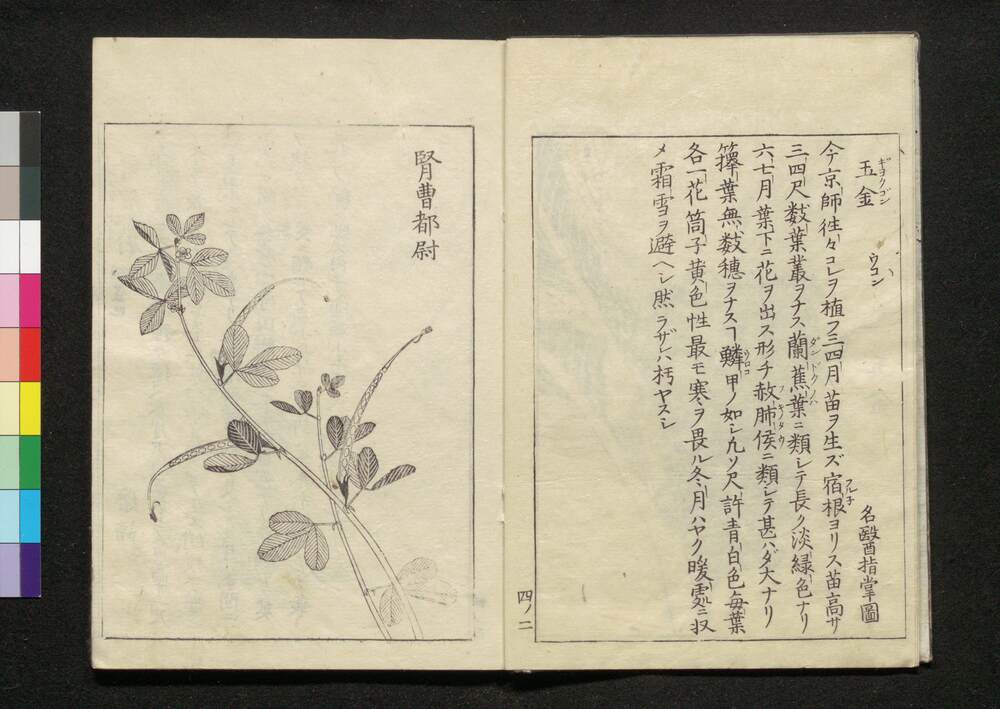 玉金 ウコン 名醫指掌圖
ギヨクゴン
今京師往々コレヲ植フ三四月苗ヲ生ズ宿根ヨリス苗高サ
フルネ
三四尺數葉叢ヲナス蘭蕉葉ニ類シテ長ク淡緑色ナリ
ダンドクノハ
六七月葉下ニ花ヲ出ス形チ赦肺侯ニ類シテ甚ハダ大ナリ
フキノタウ
籜葉無數穗ヲナスヿ鱗甲ノ如シ凡ソ尺許青白色毎葉
ウロコ
各一花筒子黄色性最モ寒ヲ畏ル冬月ハヤク暖處ニ収
メ霜雪ヲ避ヘシ然ラザレハ朽ヤスシ
四ノ二
腎曹都尉